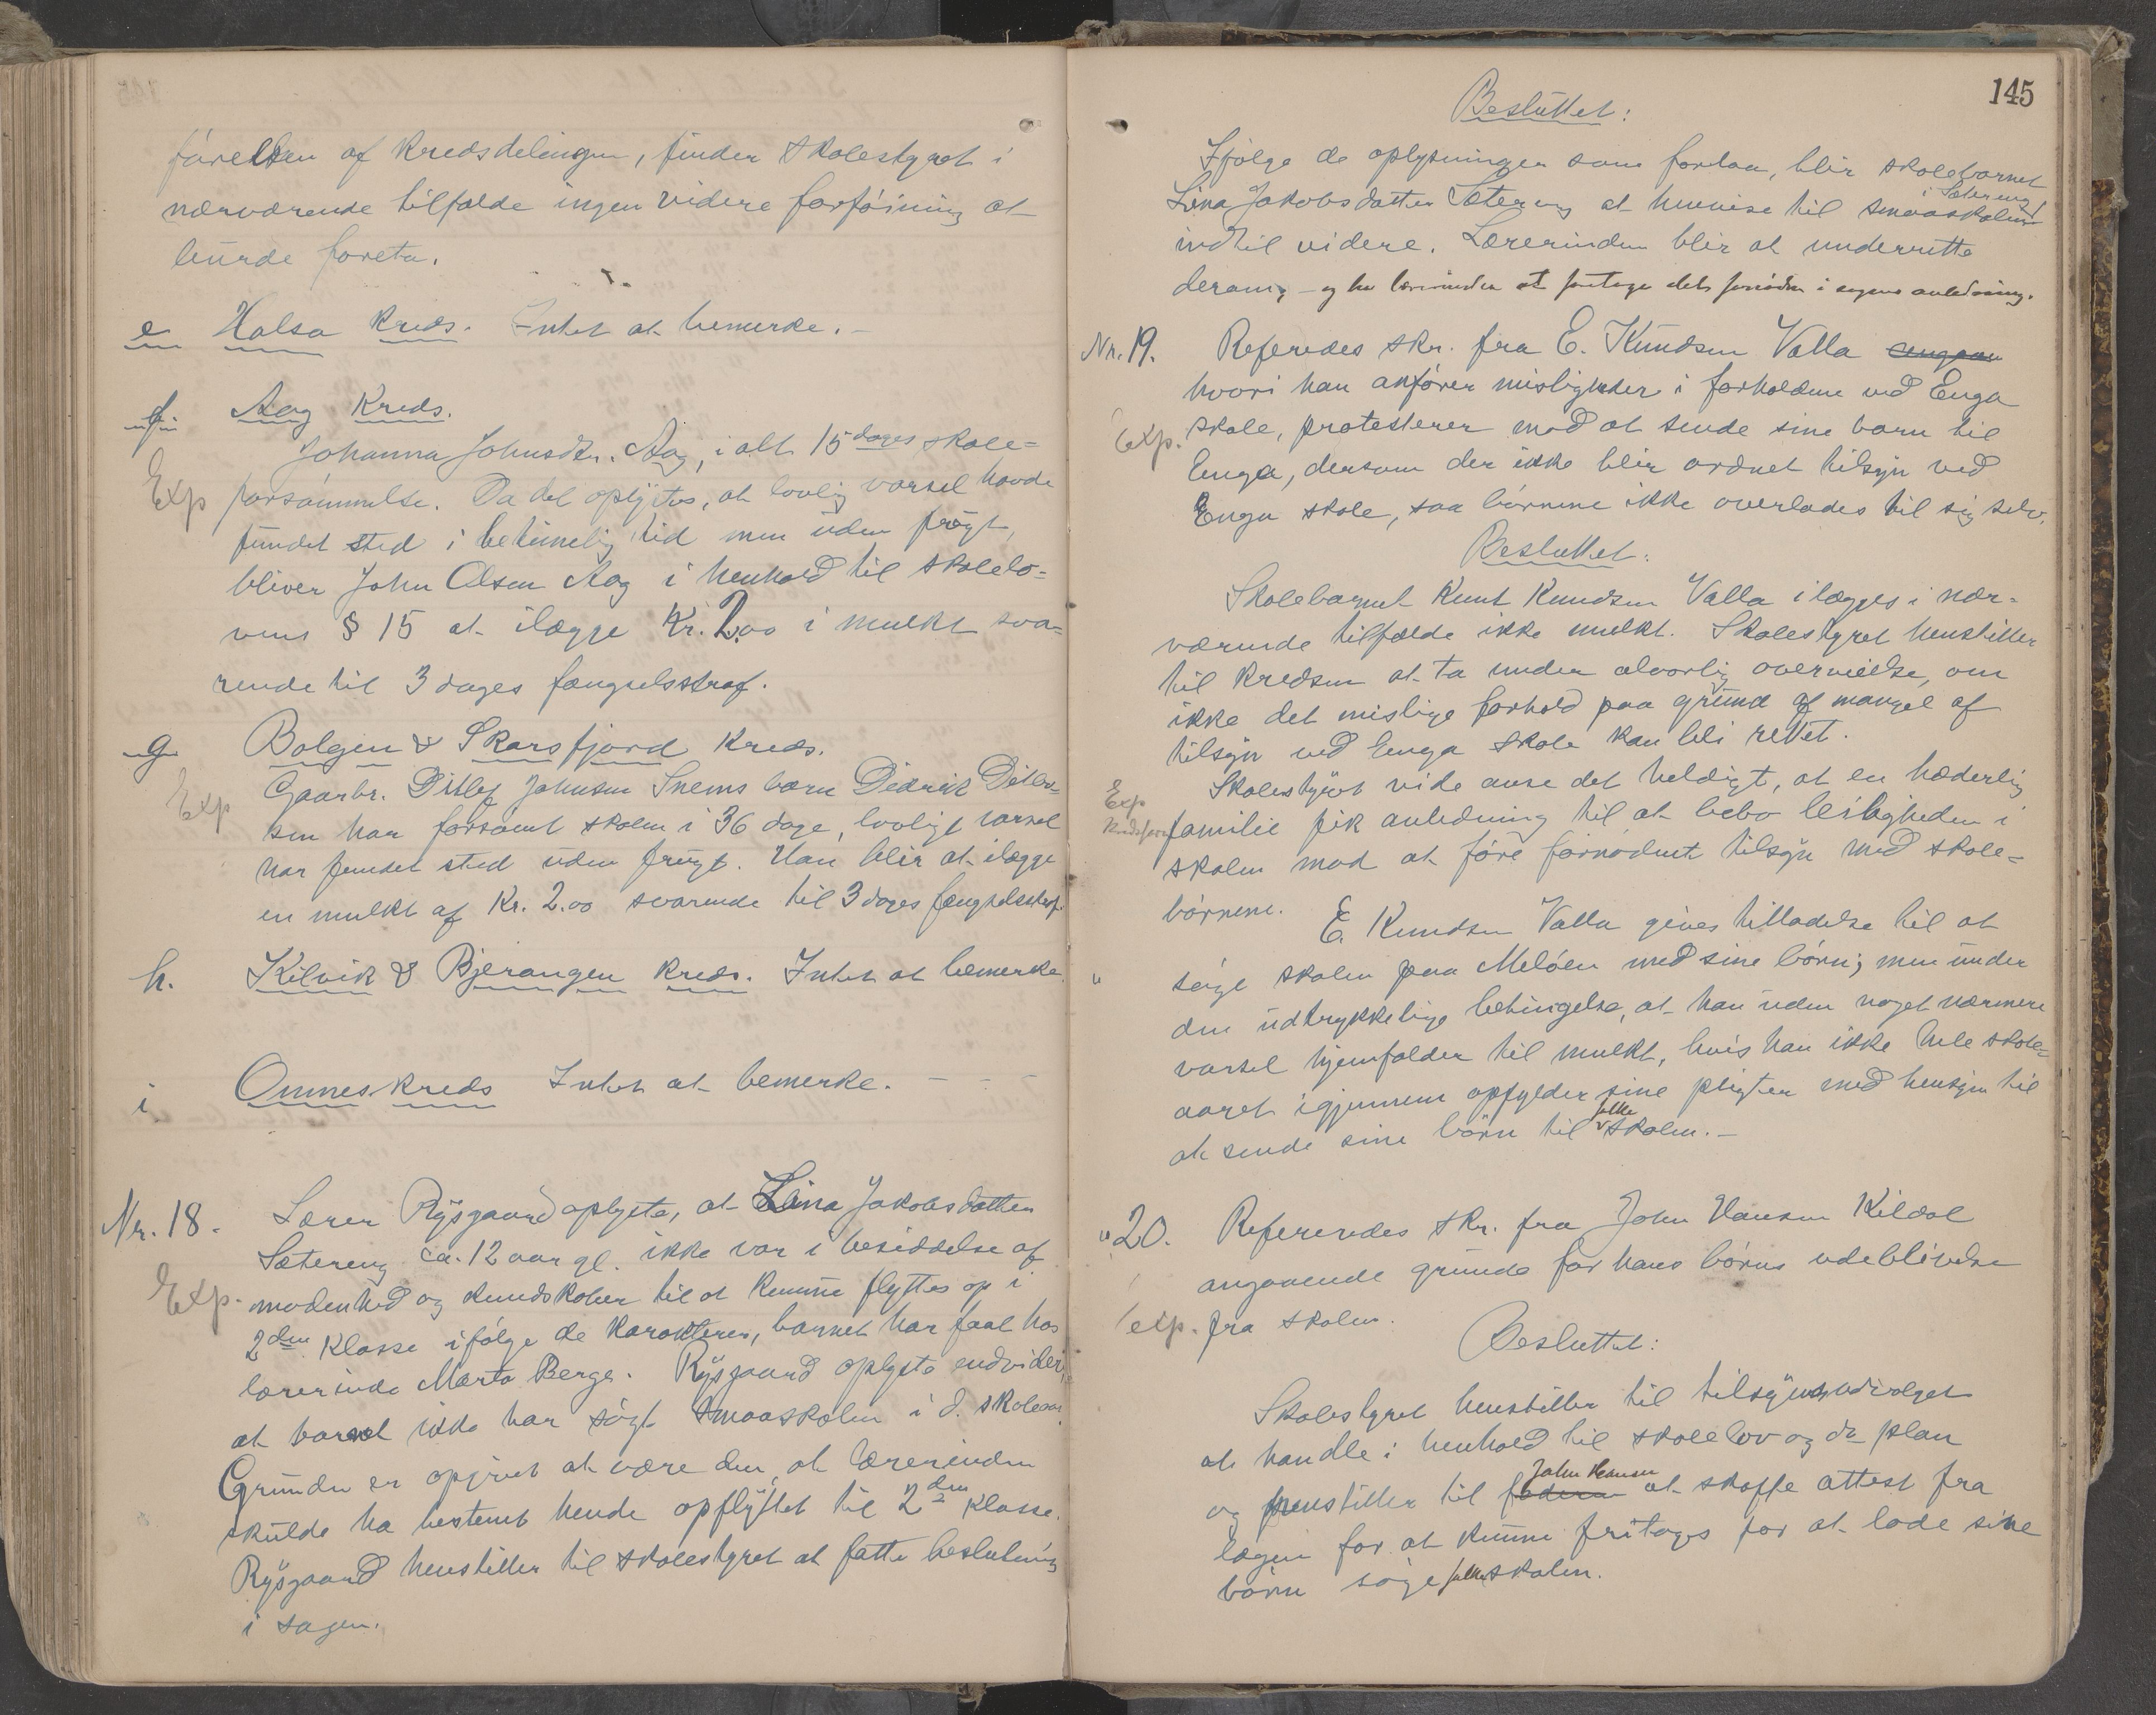 førelsen af kredsdelingen, finder skolestyret i
nærværende tilfælde ingen videre forføining at
burde foreta.
e Halsa kreds. Intet at bemerke. –
f. Aag kreds.
Johanna Johnsdtr. Aag, i alt 15 dages skole=
Exp forsømmelse. Da det oplystes, at lovlig varsel havde
fundet sted i betimelig tid men uden frugt,
bliver John Olsen Aag i henhold til skolelo=
vens § 15 at ilægge Kr. 2.00 i mulkt sva=
rende til 3 dages fængselsstraf.
g Bolgen & Skarsfjord kreds.
Gaarbr. Ditlef Johnsen Snems barn Didrik Ditlef=
Exp sen har forsømt skolen i 36 dage, lovligt varsel
har fundet sted uden frugt. Han blir at ilægge
en mulkt af Kr. 2.00 svarende til 3 dages fængselsstraf.
h. Kilvik & Bjerangen kreds. Intet at bemerke
i Ønnes kreds Intet at bemerke. – – –
Nr. 18. Lærer Rysgaard oplyste, at Lina Jakobsdatter
Sætereng ca. 12 aar gl. ikke var i besiddelse af
Exp. modenhed og kundskaber til at kunne flyttes op i
2den klasse ifølge de karakterer, barnet har faat hos
lærerinde Marta Berge. Rysgaard oplyste endvidere,
at barnet ikke har søgt smaaskolen i d. skoleaar.
Grunden er opgivet at være den, at lærerinden
skulde ha bestemt hende opflyttet til 2den klasse.
Rysgaard henstiller til skolestyret at fatte beslutning
i sagen.
145
Besluttet:
Ifølge de oplysninger som forelaa, blir skolebarnet
i Sætereng
Lina Jakobsdatter Sætereng at henvise til smaaskolen
indtil videre. Lærerinden blir at underrette
derom, – og har lærerinden at foretage det fornødne i sagens anledning.
Nr. 19. Referedes skr. fra E. Knudsen Valla angaaen
hvori han anfører misligheder i forholdene ved Enga
Exp. skole, protesterer mod at sende sine barn til
Enga, dersom der ikke blir ordnet tilsyn ved
Enga skole, saa børnene ikke overlades til sig selv.
Besluttet:
Skolebarnet Knut Knudsen Valla ilægges i nær=
værende tilfælde ikke mulkt. Skolestyret henstiller
til kredsen at ta under alvorlig overveielse, om
ikke det mislige forhold paa grund af mangel af
tilsyn ved Enga skole kan bli rettet.
Skolestyret vide anse det heldigt, at en hæderlig
Exp
Kredsform familie fik anledning til at bebo leiligheden i
skolen mod at føre fornødent tilsyn med skole=
børnene.
E. Knudsen Valla gives tilladelse til at
" søge skolen paa Meløen med sine børn; men under
den udtrykkelige betingelse, at han uden noget nærmere
varsel hjemfalder til mulkt, hvis han ikke hele skole=
aaret igjennem opfylder sine pligter med hensyn til
folke
at sende sine børn til skolen. –
" 20. Refereredes skr. fra John Hansen Kildal
angaaende grunde for hans børns udeblivelse
exp. fra skolen.
Besluttet:
Skolestyret henstiller til tilsynsudvalget
at handle i henhold til skolelov og do plan
John Hansen
og henstiller til faderen at skaffe attest fra
lægen for at kunne fritages for at lade sine
børn søge folkeskolen.